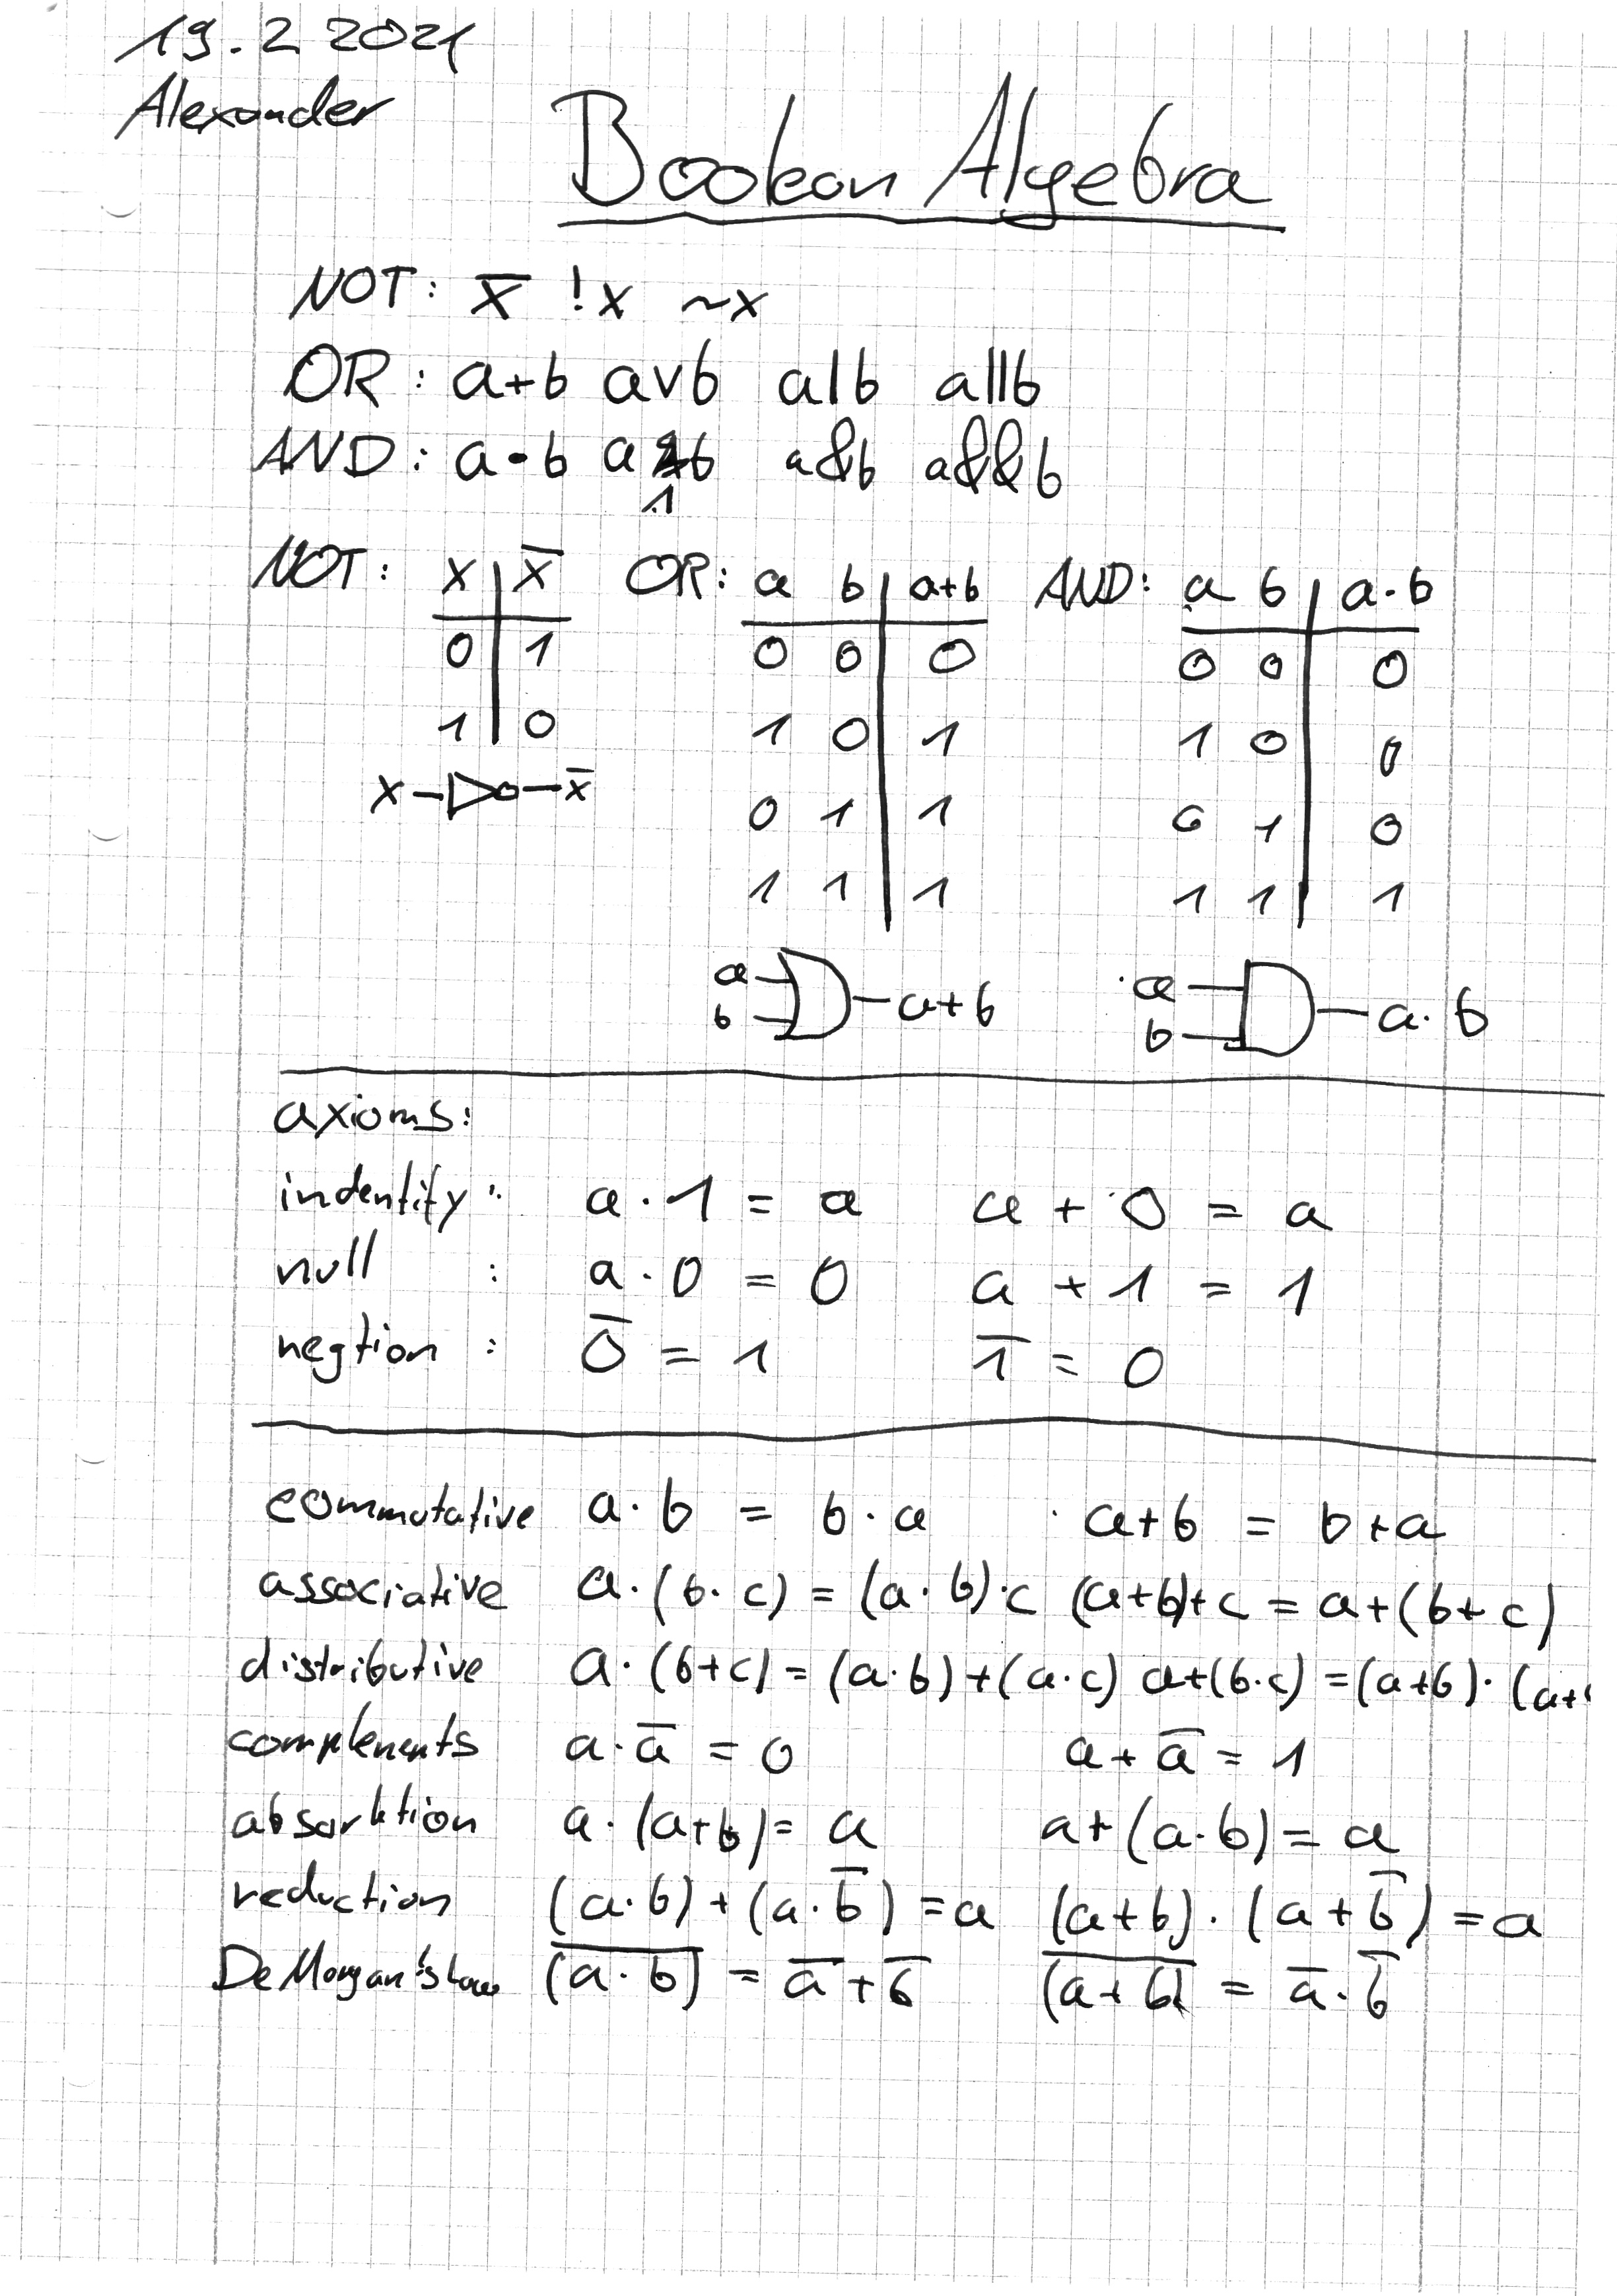 19.2 2021
Alexander
Boolean Algebra
NOT: x̅ !x ~x
OR: a+b a∨b a|b a||b
AND: a•b a∧b a&b a&&b
NOT: x | x̅ OR: a b | a+b AND: a b | a·b
0 | 1 0 0 | 0 0 0 | 0
1 | 0 1 0 | 1 1 0 | 0
x x̅ 0 1 | 1 0 1 | 0
1 1 | 1 1 1 | 1
a b a+b a b a·b
axioms:
indentify: a·1 = a a + 0 = a
null : a·0 = 0 a + 1 = 1
negtion : 0̅ = 1 1̅ = 0
commutative a·b = b·a a+b = b+a
associative a·(b·c) = (a·b)·c (a+b)+c = a+(b+c)
distributive a·(b+c) = (a·b)+(a·c) a+(b·c) = (a+b)·(a+
complements a·a̅ = 0 a+a̅ = 1
absorbtion a·(a+b) = a a+(a·b) = a
reduction (a·b)+(a·b̅) = a (a+b)·(a+b̅) = a
De Morgan's law (a·b)̅ = a̅+b̅ (a+b)̅ = a̅·b̅